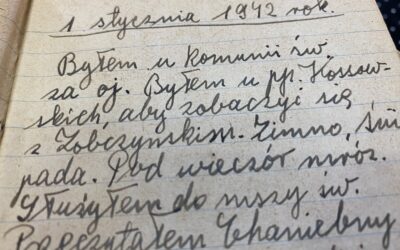 1 stycznia 1942 rok.
Byłem u komunii św.
za oj. Byłem u pp. Kossow-
skich, aby zobaczyć się
z Zobczyńskim. Zimno, śni
pada. Pod wieczór mróz.
Służyłem do mszy św.
Przeczytałem